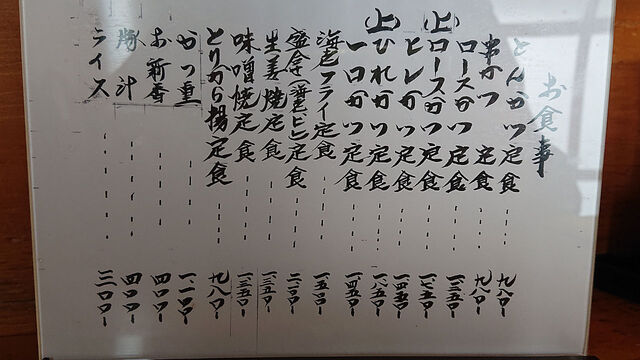 お食事
とんかつ定食 九八〇-
串かつ定食 九八〇-
ロースかつ定食 一三五〇-
(上)ロースかつ定食 一七五〇-
ヒレかつ定食 一四五〇-
(上)ひれかつ定食 一八五〇-
一口かつ定食 一四五〇-
海老フライ定食 一五〇〇-
盛合(海老ヒレ)定食
生姜焼定食 一三五〇-
味噌焼定食 一三五〇-
とりから揚定食 九八〇-
かつ重 一一〇〇-
お新香 四〇〇-
豚汁 四〇〇-
ライス 三〇〇-